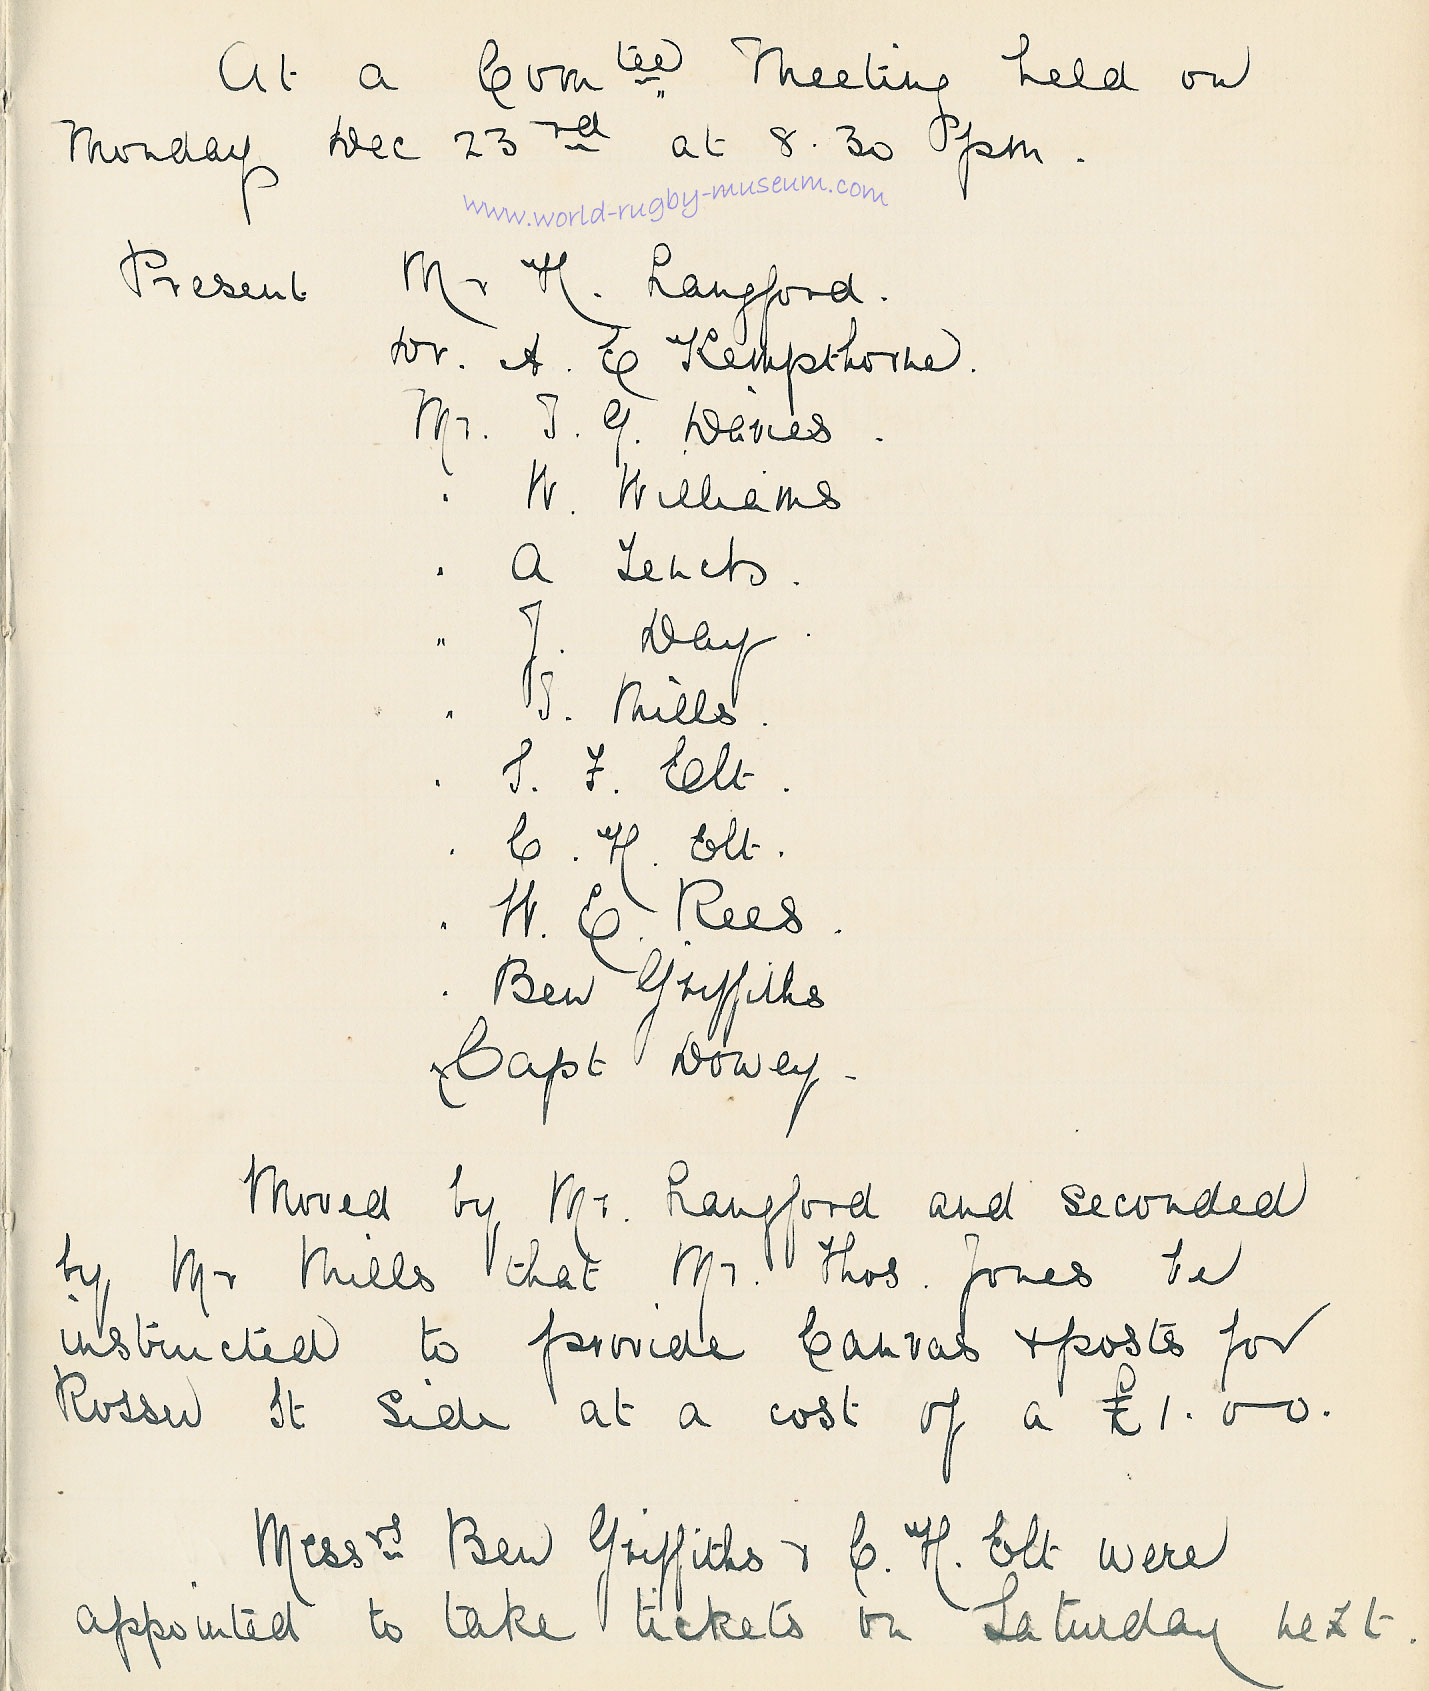 At a Comtee Meeting held on
Monday Dec 23rd at 8.30 pm.
www.world-rugby-museum.com
Present Mr H. Langford.
Dr. A. E Kempthorne.
Mr. T. G. Davies.
" W. Williams
" A
" J. Day.
" T. Mills.
" T. F. Elt.
" C. H. Elt.
" W. E. Rees.
" Ben Griffiths
Capt Dowey -
Moved by Mr. Langford and seconded
by Mr Mills that Mr. Thos. Jones be
instructed to provide Canvas + posts for
Rosser St Side at a cost of a £1.0-0.
Messrs Ben Griffiths + C. H. Elt were
appointed to take tickets on Saturday next.